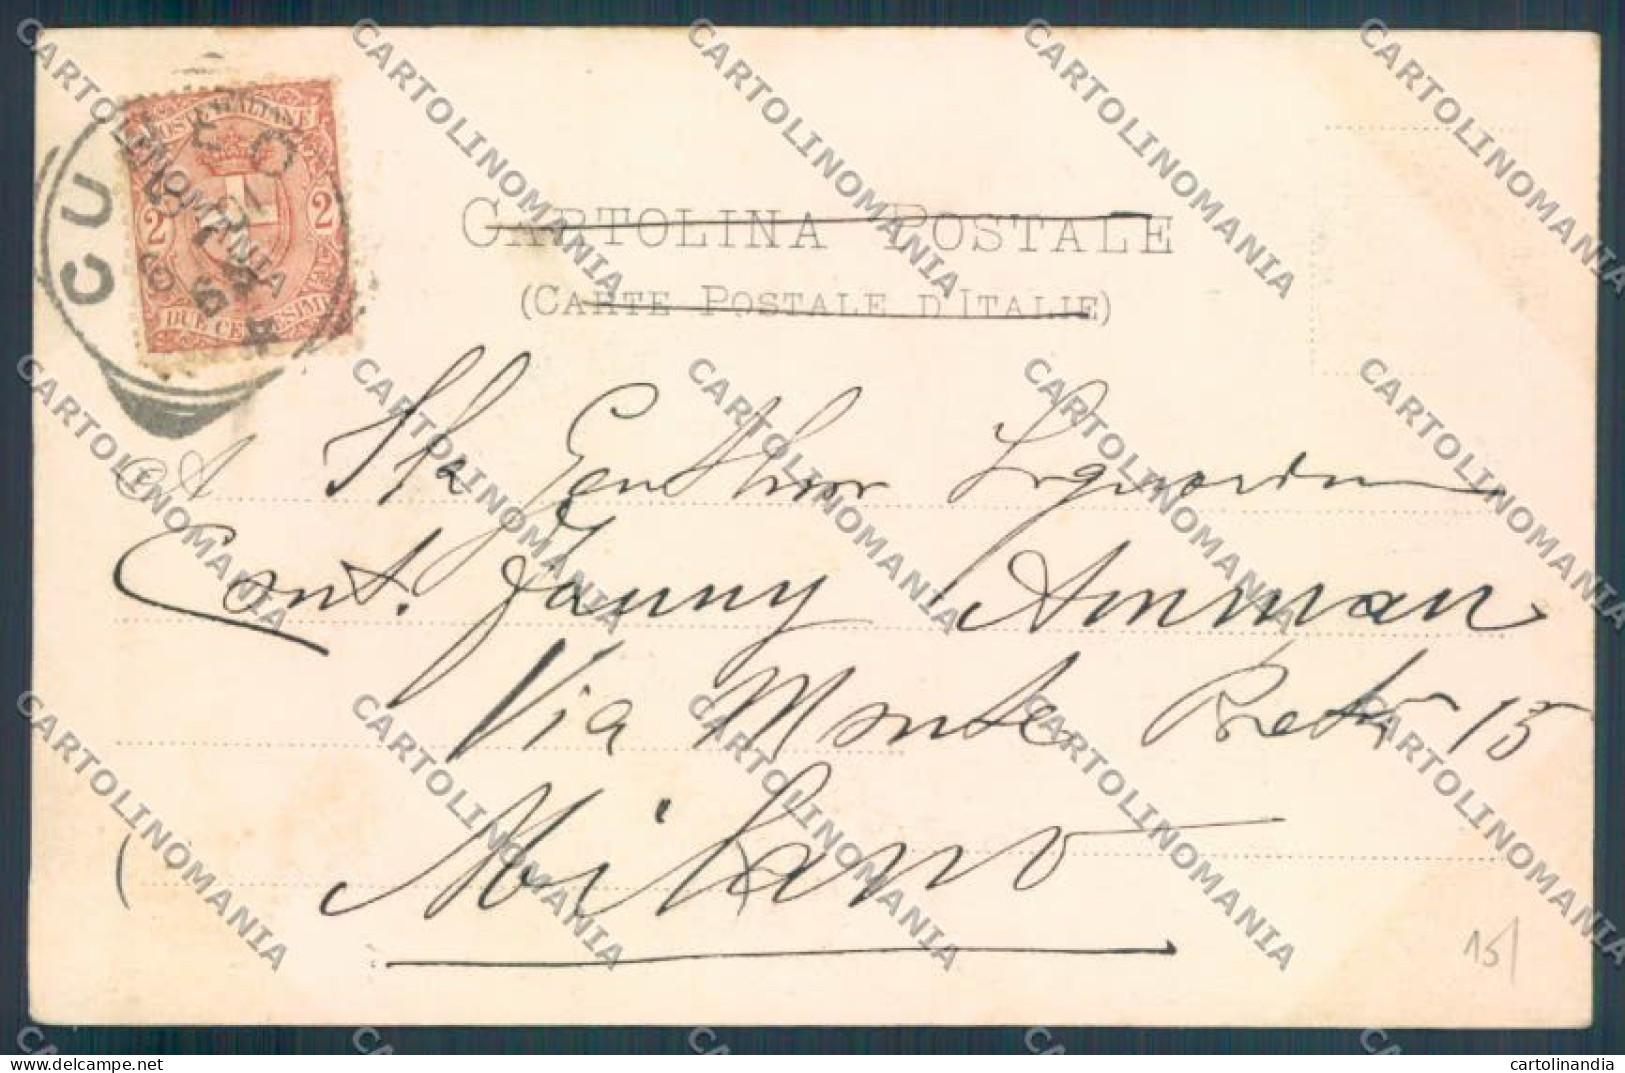 POSTE ITALIANE
2 2
DUE CENTESIMI
CUNEO
CARTOLINA POSTALE
(CARTE POSTALE D'ITALIE)
A
Cont. Fanny Amman
Via Monte 15
Milano
15
CARTOLINOMANIA
cartolinandia